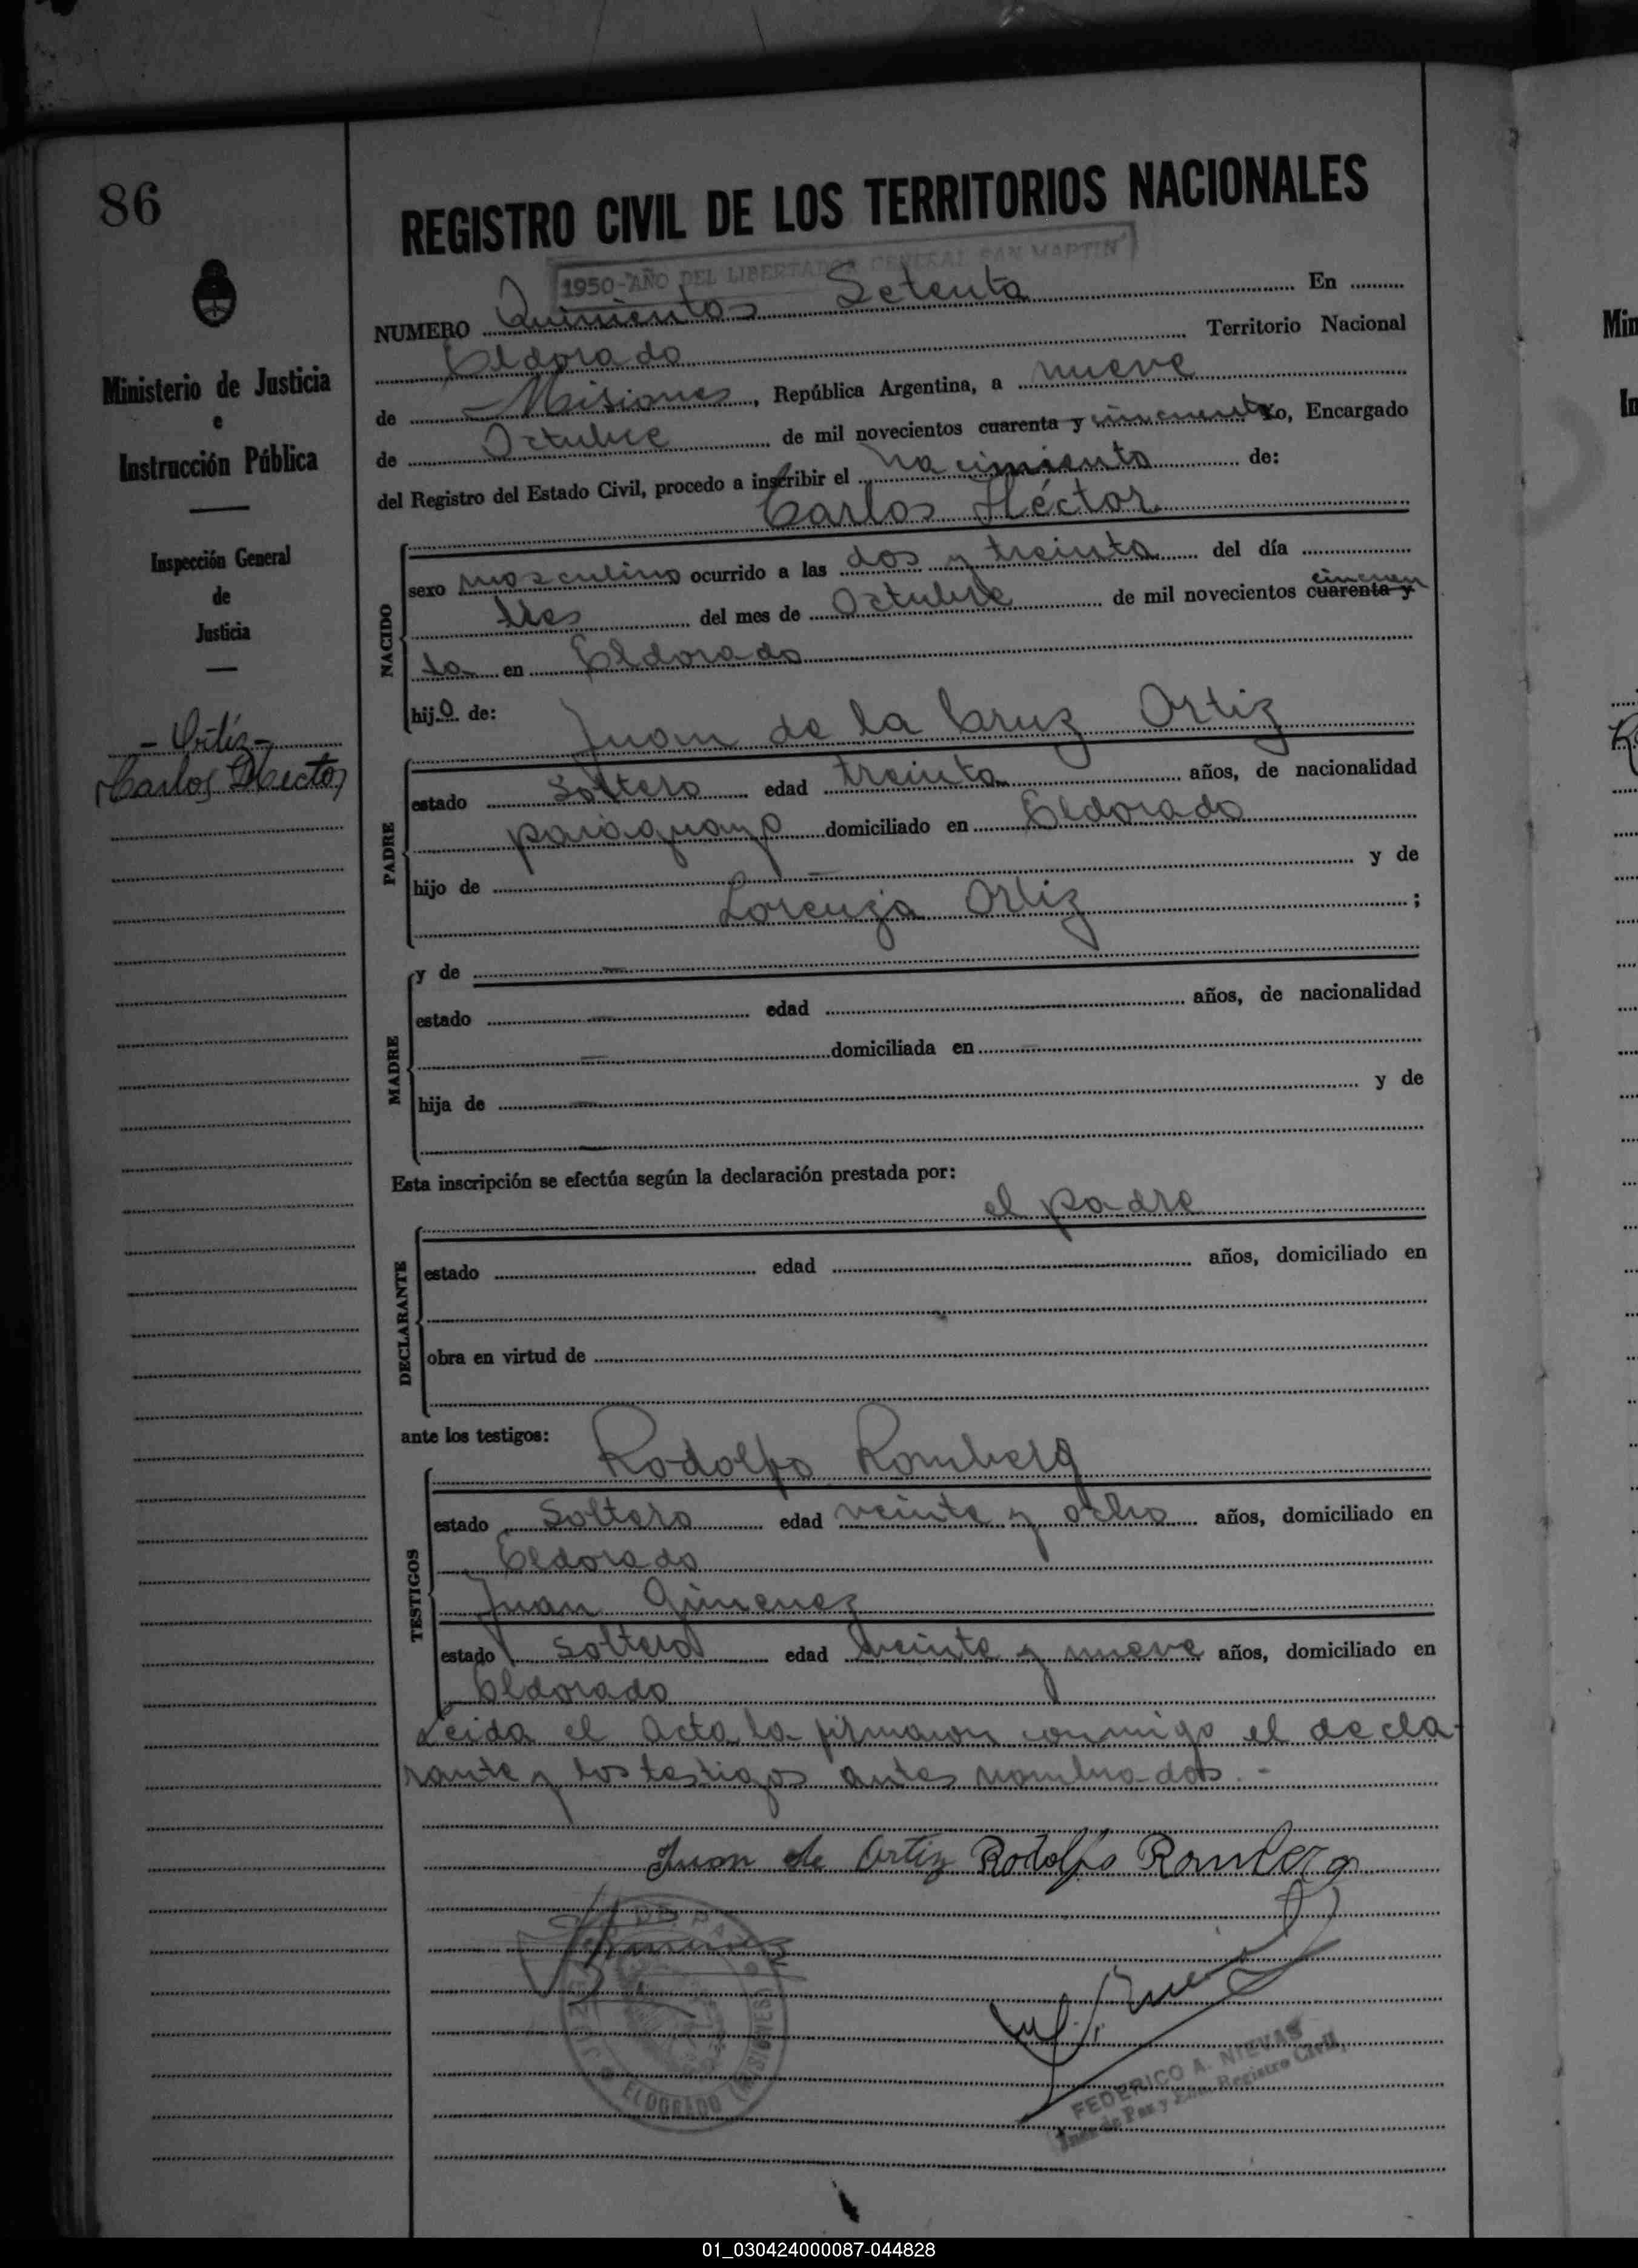 86
REGISTRO CIVIL DE LOS TERRITORIOS NACIONALES
1950-"AÑO DEL LIBERTADOR GENERAL SAN MARTIN"
NUMERO Quinientos Setenta En
Eldorado Territorio Nacional
de Misiones, República Argentina, a nueve
de Octubre de mil novecientos cuarenta y cincuenta Yo, Encargado
del Registro del Estado Civil, procedo a inscribir el nacimiento de:
Carlos Héctor
NACIDO
sexo masculino ocurrido a las dos y treinta del día
tres del mes de Octubre de mil novecientos cuarenta y cincuen
ta en Eldorado
hijo de:
Juan de la Cruz Ortiz
PADRE
estado soltero edad treinta años, de nacionalidad
paraguayo domiciliado en Eldorado
hijo de — y de
Lorenza Ortiz ;
MADRE
y de —
estado — edad años, de nacionalidad
— domiciliada en
hija de — y de
—
Esta inscripción se efectúa según la declaración prestada por:
el padre
DECLARANTE
estado edad años, domiciliado en
obra en virtud de
ante los testigos:
Rodolfo Romberg
TESTIGOS
estado soltero edad veinte y ocho años, domiciliado en
Eldorado
Juan Gimenez
estado soltero edad veinte y nueve años, domiciliado en
Eldorado
Leida el Acta la firmaron conmigo el decla-
rante y los testigos antes nombrados.-
Juan de Ortiz Rodolfo Romberg
ELDORADO (MISIONES)
FEDERICO A. NIEVAS
Juez de Paz y Enc. Registro Civil
Ministerio de Justicia
e
Instrucción Pública
Inspección General
de
Justicia
- Ortíz -
Carlos Hector
Min
In
01_030424000087-044828